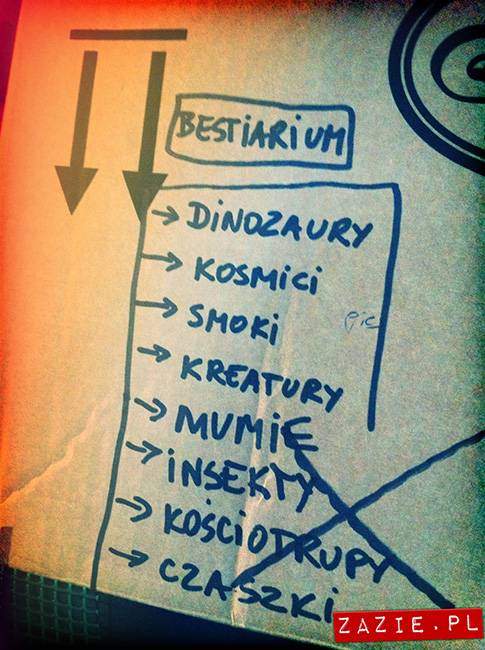 BESTiARiUM
DiNOZAURY
KOSMiCi
SMOKi
KREATURY
MUMiE
iNSEKTY
KOŚCiOTRUPY
CZASZKi
ZAZIE.PL